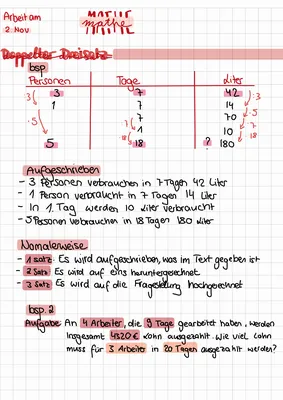 Arbeit am
2. Nov
MATHE
mathe
Doppelter Dreisatz
bsp
Personen Tage Liter
3 7 42
:3 :3
1 7 14
·5 7 70 ·5
1 10 :7
·18 ·18
5 18 ? 180
Aufgeschrieben
- 3 Personen verbrauchen in 7 Tagen 42 Liter
- 1 Person verbraucht in 7 Tagen 14 Liter
- In 1. Tag werden 10 Liter verbraucht
- 5 Personen verbrauchen in 18 Tagen 180 Liter
Normalerweise
- 1 Satz: Es wird aufgeschrieben, was im Text gegeben ist
- 2 Satz: Es wird auf eins heruntergerechnet
- 3 Satz: Es wird auf die Fragestellung hochgerechnet
bsp. 2
Aufgabe: An 4 Arbeiter, die 9 Tage gearbeitet haben, werden
insgesamt 4320 € Lohn ausgezahlt. Wie viel Lohn
muss für 3 Arbeiter in 20 Tagen ausgezahlt werden?